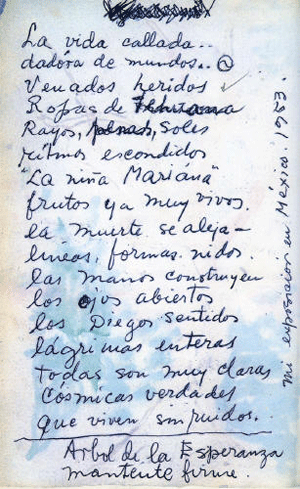 La vida callada..
dadora de mundos..
Venados heridos
Ropas de Tehuana
Rayos, penas, Soles
ritmos escondidos
"La niña Mariana"
frutos ya muy vivos.
la muerte se aleja –
lineas, formas. nidos.
las manos construyen
los ojos abiertos
los Diegos sentidos
lágrimas enteras
todas son muy claras
Cósmicas verdades
que viven sin ruidos.
Arbol de la Esperanza
mantente firme.
Mi exposicion en México. 1953.